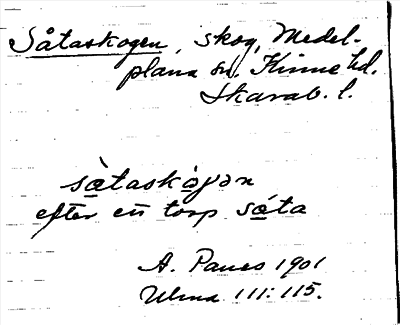 Såtaskogen, skog, Medel-
plana sn. Kinne hd.
Skarab. l.
sàtaskòγən
efter ett torp sáta
A. Pauss 1901
Ulma 111:115.